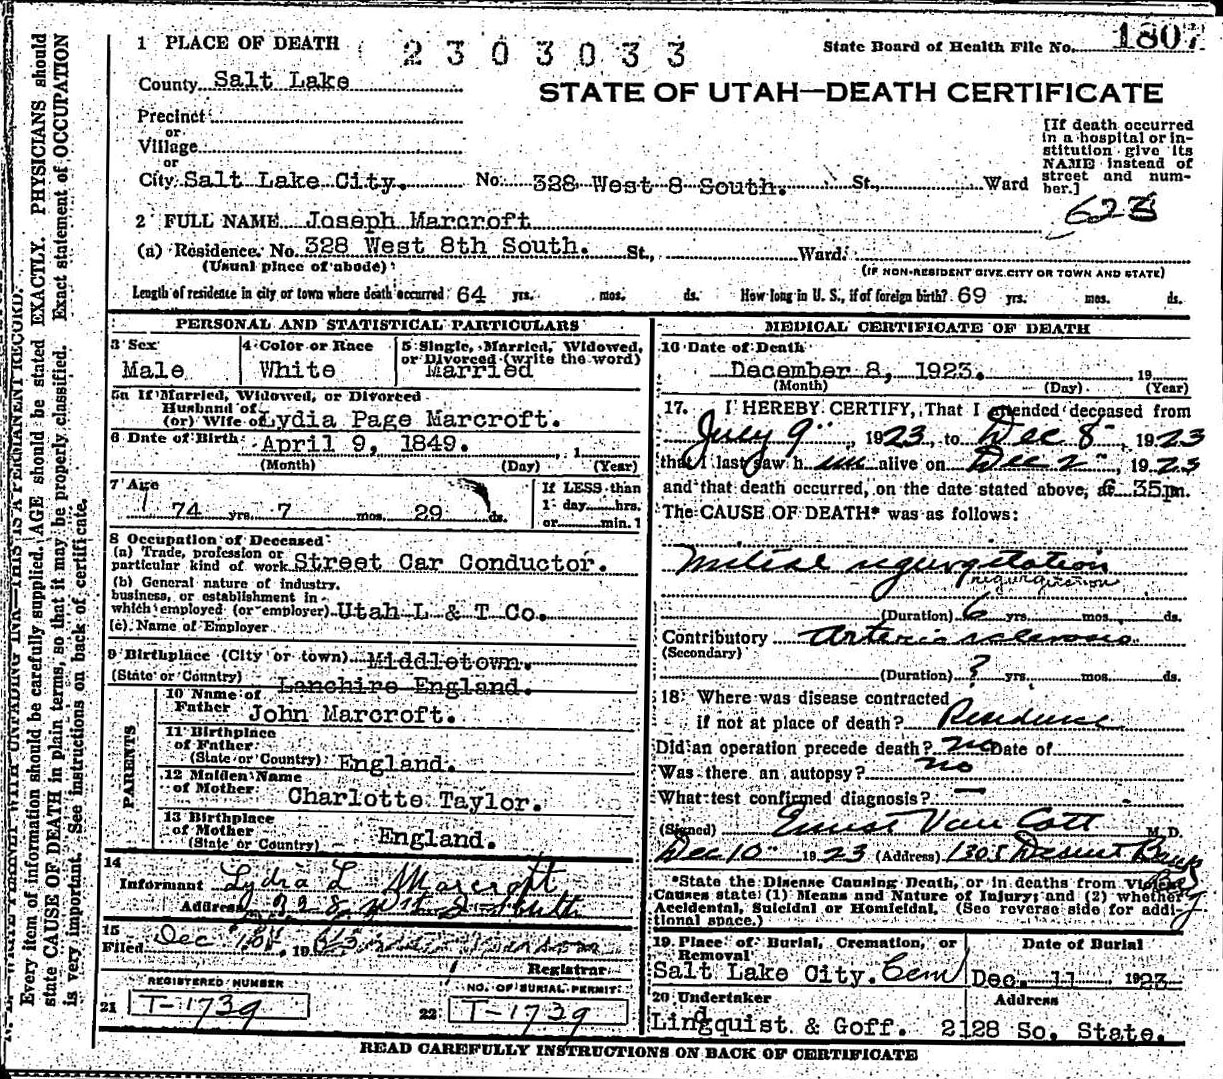 1 PLACE OF DEATH
2303033
State Board of Health File No. 1807
County Salt Lake
STATE OF UTAH—DEATH CERTIFICATE
Precinct
or
Village
or
City Salt Lake City. No. 328 West 8 South. St., Ward
[If death occurred
in a hospital or in-
stitution give its
NAME instead of
street and num-
ber.]
623
2 FULL NAME Joseph Marcroft
(a) Residence. No. 328 West 8th South. St., Ward.
(Usual place of abode)
(IF NON-RESIDENT GIVE CITY OR TOWN AND STATE)
Length of residence in city or town where death occurred 64 yrs. mos. ds. How long in U. S., if of foreign birth? 69 yrs. mos. ds.
PERSONAL AND STATISTICAL PARTICULARS
3 Sex
Male
4 Color or Race
White
5 Single, Married, Widowed,
or Divorced (write the word)
Married
5a If Married, Widowed, or Divorced
Husband of
(or) Wife of Lydia Page Marcroft.
6 Date of Birth April 9, 1849. , 1
(Month) (Day) (Year)
7 Age
74 yrs. 7 mos. 29 ds.
If LESS than
1 day hrs.
or min.
8 Occupation of Deceased
(a) Trade, profession or
particular kind of work Street Car Conductor.
(b) General nature of industry,
business, or establishment in
which employed (or employer) Utah L & T Co.
(c) Name of Employer
9 Birthplace (City or town) Middletown.
(State or Country) Lanchire England.
PARENTS
10 Name of
Father John Marcroft.
11 Birthplace
of Father
(State or Country) England.
12 Maiden Name
of Mother Charlotte Taylor.
13 Birthplace
of Mother
(State or Country) England.
14
Informant Lydia L Marcroft
Address
15
Filed Dec , 19
Registrar
REGISTERED NUMBER
21 T-1739
NO. OF BURIAL PERMIT
22 T-1739
MEDICAL CERTIFICATE OF DEATH
16 Date of Death
December 8, 1923. 19
(Month) (Day) (Year)
17. I HEREBY CERTIFY, That I attended deceased from
July 9", 1923, to Dec 8", 1923
that I last saw him alive on Dec 2", 1923
and that death occurred, on the date stated above, at 6 35pm.
The CAUSE OF DEATH* was as follows:
Mitral regurgitation
regurgitation
(Duration) 6 yrs. mos. ds.
Contributory Arterio sclerosis
(Secondary)
(Duration) ? yrs. mos. ds.
18 Where was disease contracted
if not at place of death? Residence
Did an operation precede death? no Date of
Was there an autopsy? no
What test confirmed diagnosis? —
(Signed) Ernest Van Cott M. D.
Dec 10 1923 (Address) 1305 Deseret Bank
Bldg
*State the Disease Causing Death, or in deaths from Violent
Causes state (1) Means and Nature of Injury; and (2) whether
Accidental, Suicidal or Homicidal. (See reverse side for addi-
tional space.)
19. Place of Burial, Cremation, or
Removal
Salt Lake City. Cem
Date of Burial
Dec. 11 1923
20 Undertaker
Lindquist & Goff.
Address
2128 So. State.
READ CAREFULLY INSTRUCTIONS ON BACK OF CERTIFICATE
WRITE PLAINLY WITH UNFADING INK—THIS IS A PERMANENT RECORD.
Every item of information should be carefully supplied. AGE should be stated EXACTLY. PHYSICIANS should
state CAUSE OF DEATH in plain terms, so that it may be properly classified. Exact statement of OCCUPATION
is very important. See instructions on back of certificate.